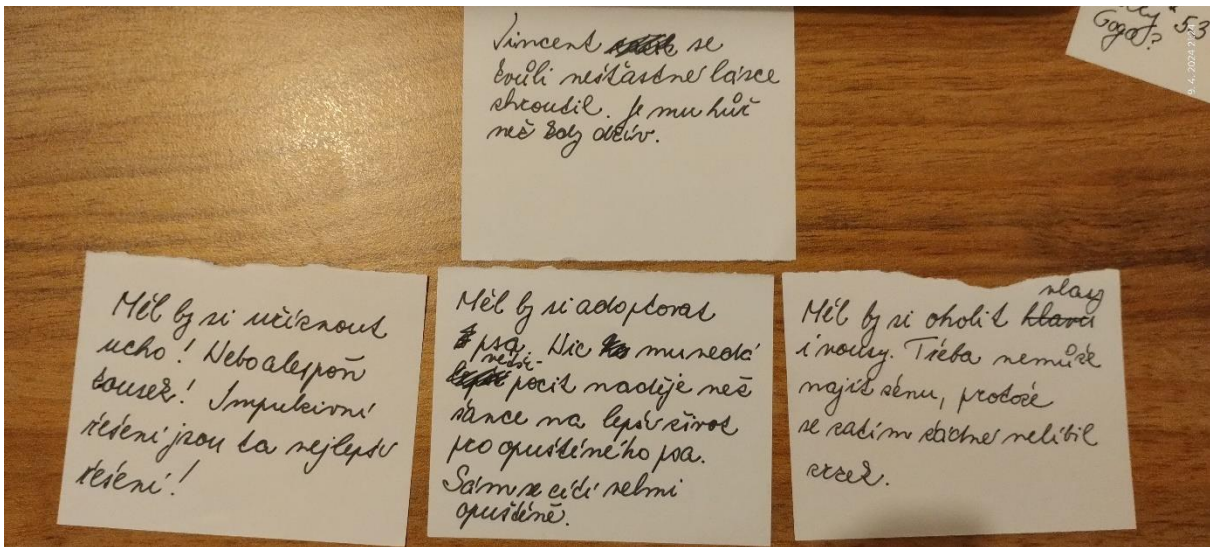 Vincent se
kvůli nešťastné lásce
zhroutil. Je mu hůř
než kdy dřív.
Gogh? 53
9. 4. 2024 2
Měl by si uříznout
ucho! Nebo alespoň
kousek! Impulzivní
řešení jsou ta nejlepší
řešení!
Měl by si adoptovat
psa. Nic mu nedá
větší
pocit naděje než
šance na lepší život
pro opuštěného psa.
Sám se cítí velmi
opuštěně.
vlasy
Měl by si oholit hlavu
i vousy. Třeba nemůže
najít ženu, protože
se zatím žádné nelíbil
zrzek.